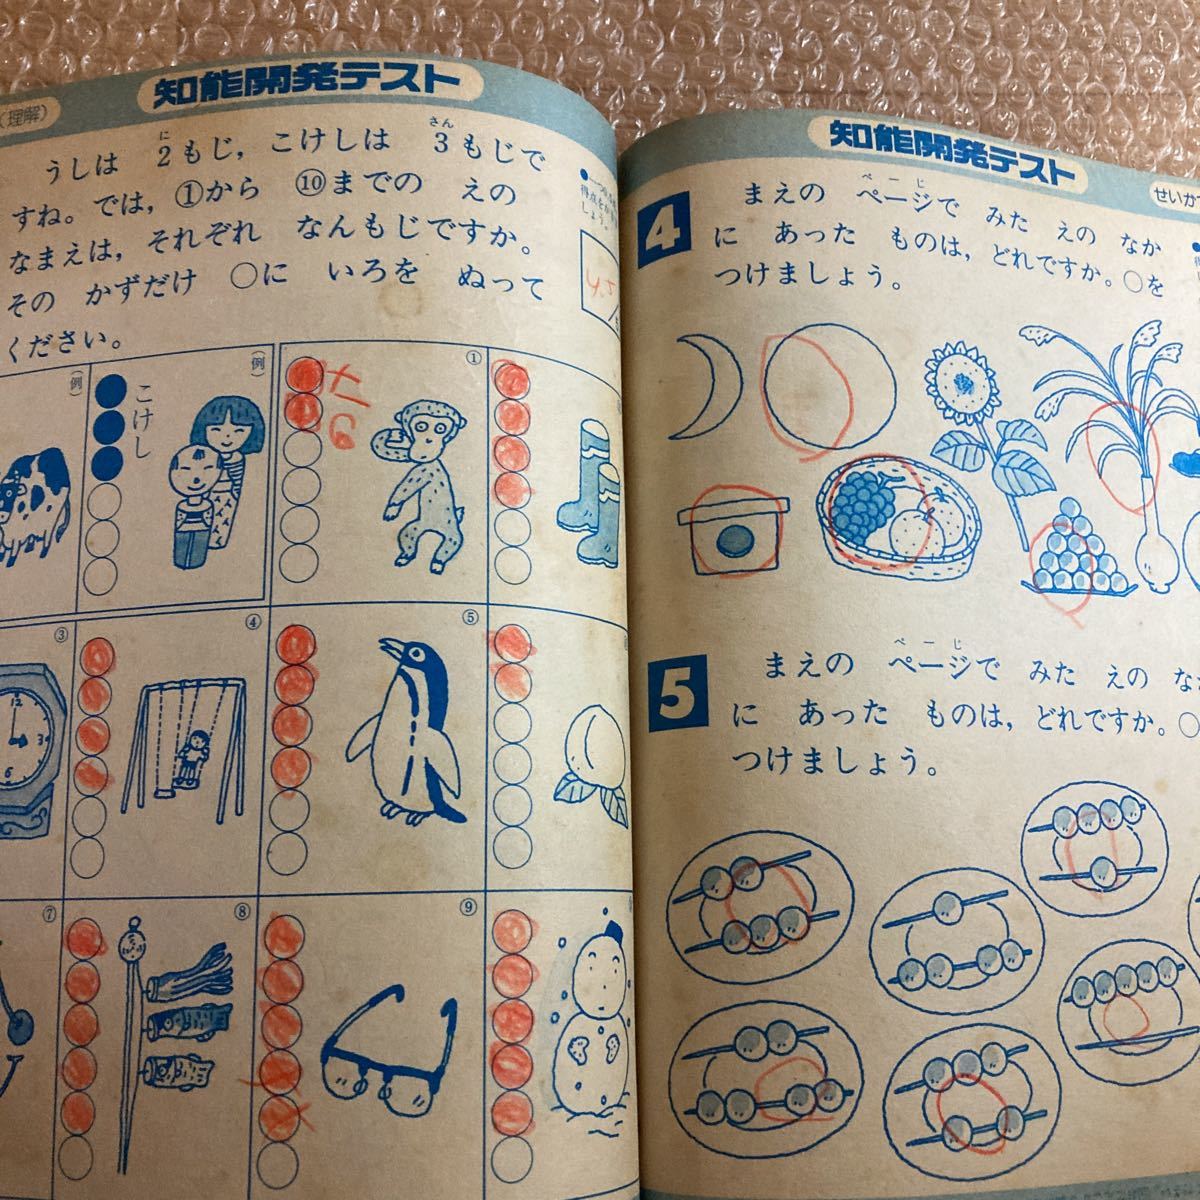 (理解)
知能開発テスト
うしは 2もじ, こけしは 3もじで
に
さん
すね。では, ①から ⑩までの えの
なまえは, それぞれ なんもじですか。
その かずだけ ○に いろを ぬって
ください。
(例)
(例)
こけし
①
③
④
⑤
⑦
⑧
⑨
12
3
6
知能開発テスト
せいかつ
4
ページ
まえの ページで みた えの なか
に あった ものは, どれですか。○を
つけましょう。
5
ページ
まえの ページで みた えの なか
に あった ものは, どれですか。○
つけましょう。